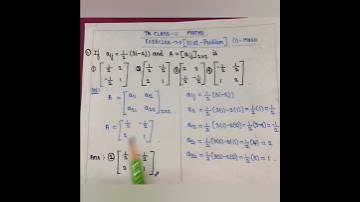 TN CLASS-11 MATHS
Exercise → 7 [Text-Problem] (1-Mark)
① If aij = 1/2 (3i-2j) and A = [aij]2x2 is
① [1/2 2 -1/2 1] ② [1/2 -1/2 2 1] ③ [2 2 1/2 -1/2] ④ [-1/2 1/2 1 2]
Sol:
A = [a11 a12 a21 a22]2x2
A = [1/2 -1/2 2 1]
Ans :- ② [1/2 -1/2 2 1]
aij = 1/2 (3i-2j)
a11 = 1/2 (3(1)-2(1)) = 1/2 (1) = 1/2
a12 = 1/2 (3(1)-2(2)) = 1/2 (3-4) = -1/2
a21 = 1/2 (3(2)-2(1)) = 1/2 (4) = 2
a22 = 1/2 (3(2)-2(2)) = 1/2 (2) = 1